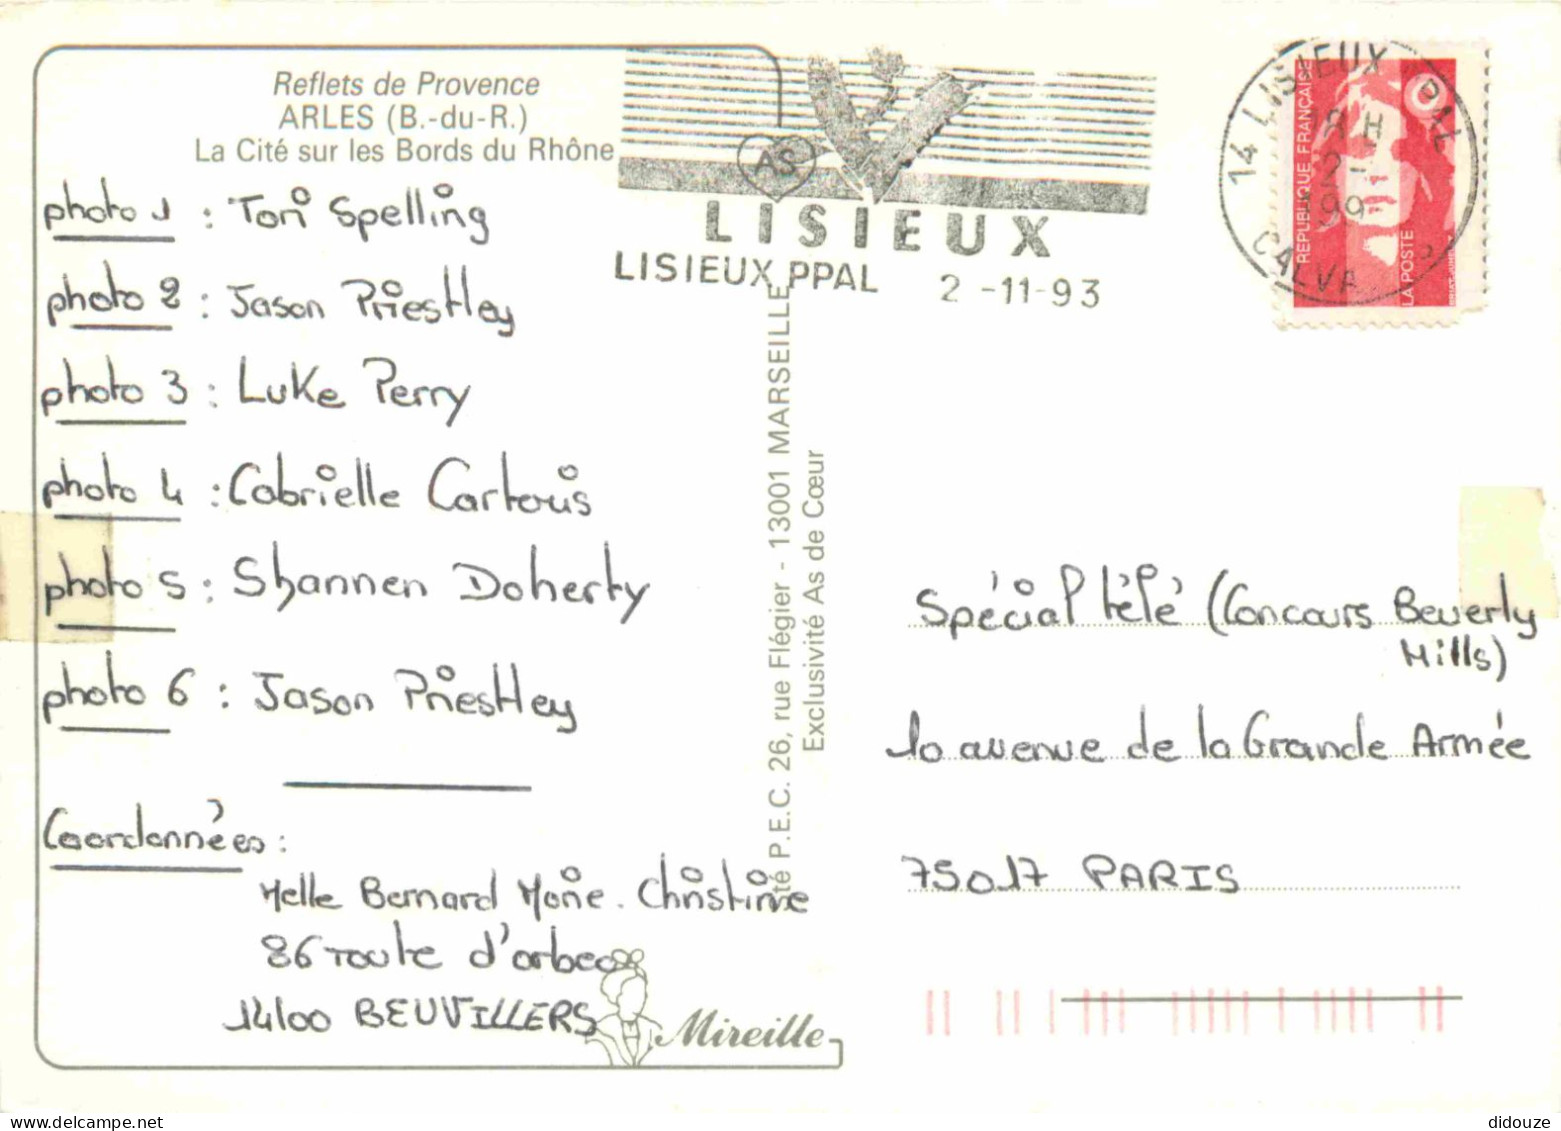 Reflets de Provence
ARLES (B.-du-R.)
La Cité sur les Bords du Rhône
photo 1 : Tori Spelling
photo 2 : Jason Priestley
photo 3 : Luke Perry
photo 4 : Gabrielle Cartouis
photo 5 : Shannen Doherty
photo 6 : Jason Priestley
Coordonnées :
Melle Bernard Marie. Christine
86 route d'orbec
14100 BEUVILLERS
Mireille
té P.E.C. 26, rue Flégier - 13001 MARSEILLE
Exclusivité As de Cœur
AS
LISIEUX
LISIEUX PPAL 2 -11-93
14 LISIEUX PAL
CALVA
RÉPUBLIQUE FRANÇAISE
LA POSTE
Spécial télé (Concours Beverly
Hills)
10 avenue de la Grande Armée
75017 PARIS
didouze